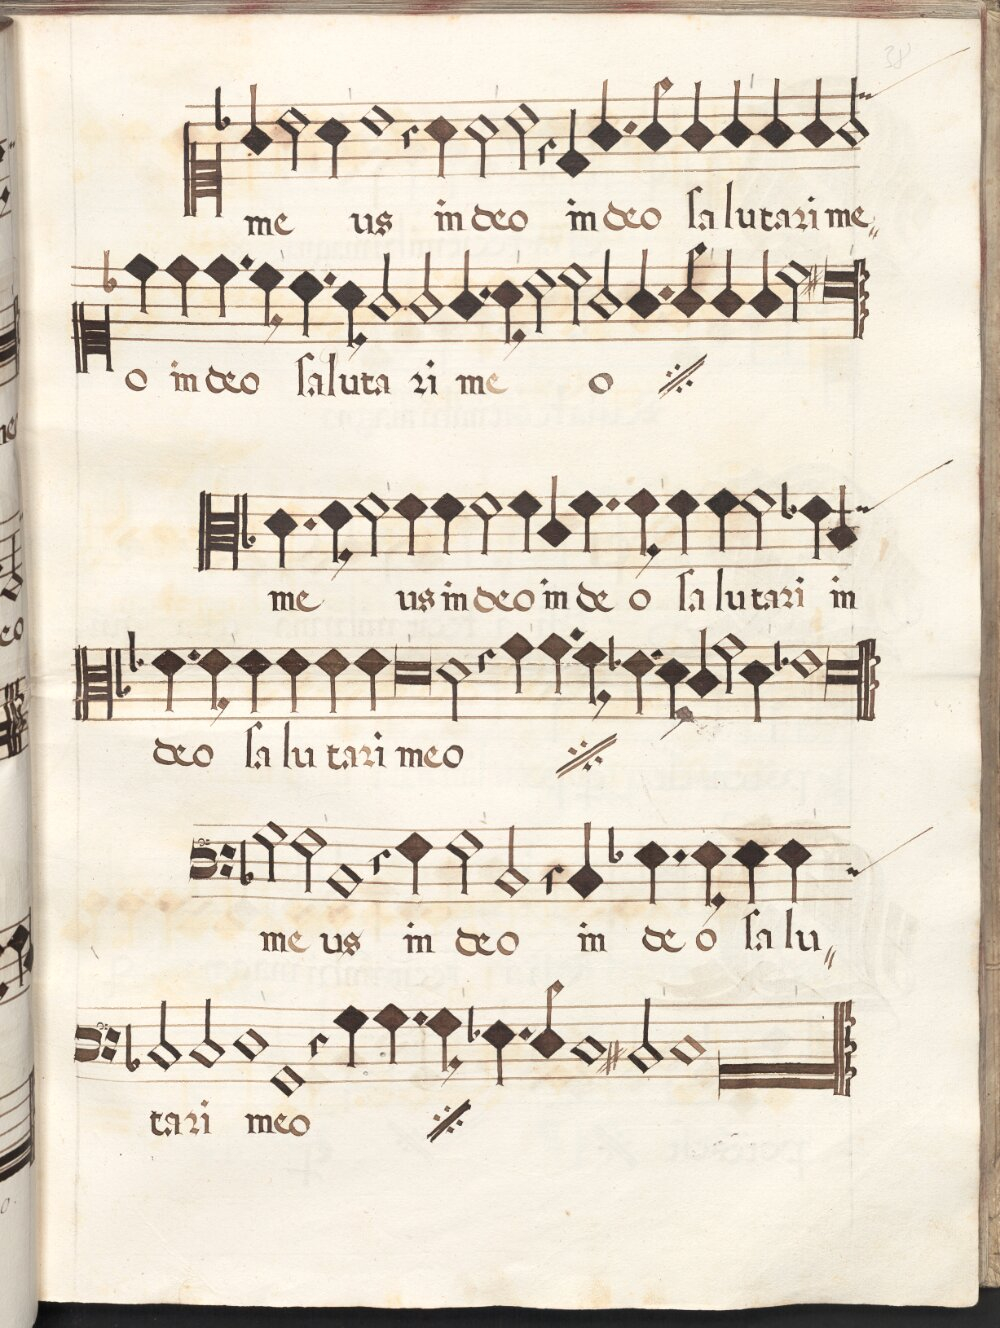 38
me us in deo in deo salutari me
o in deo saluta ri me o
me us in deo in de o salutari in
deo salutari meo
me us in deo in de o salu
tari meo